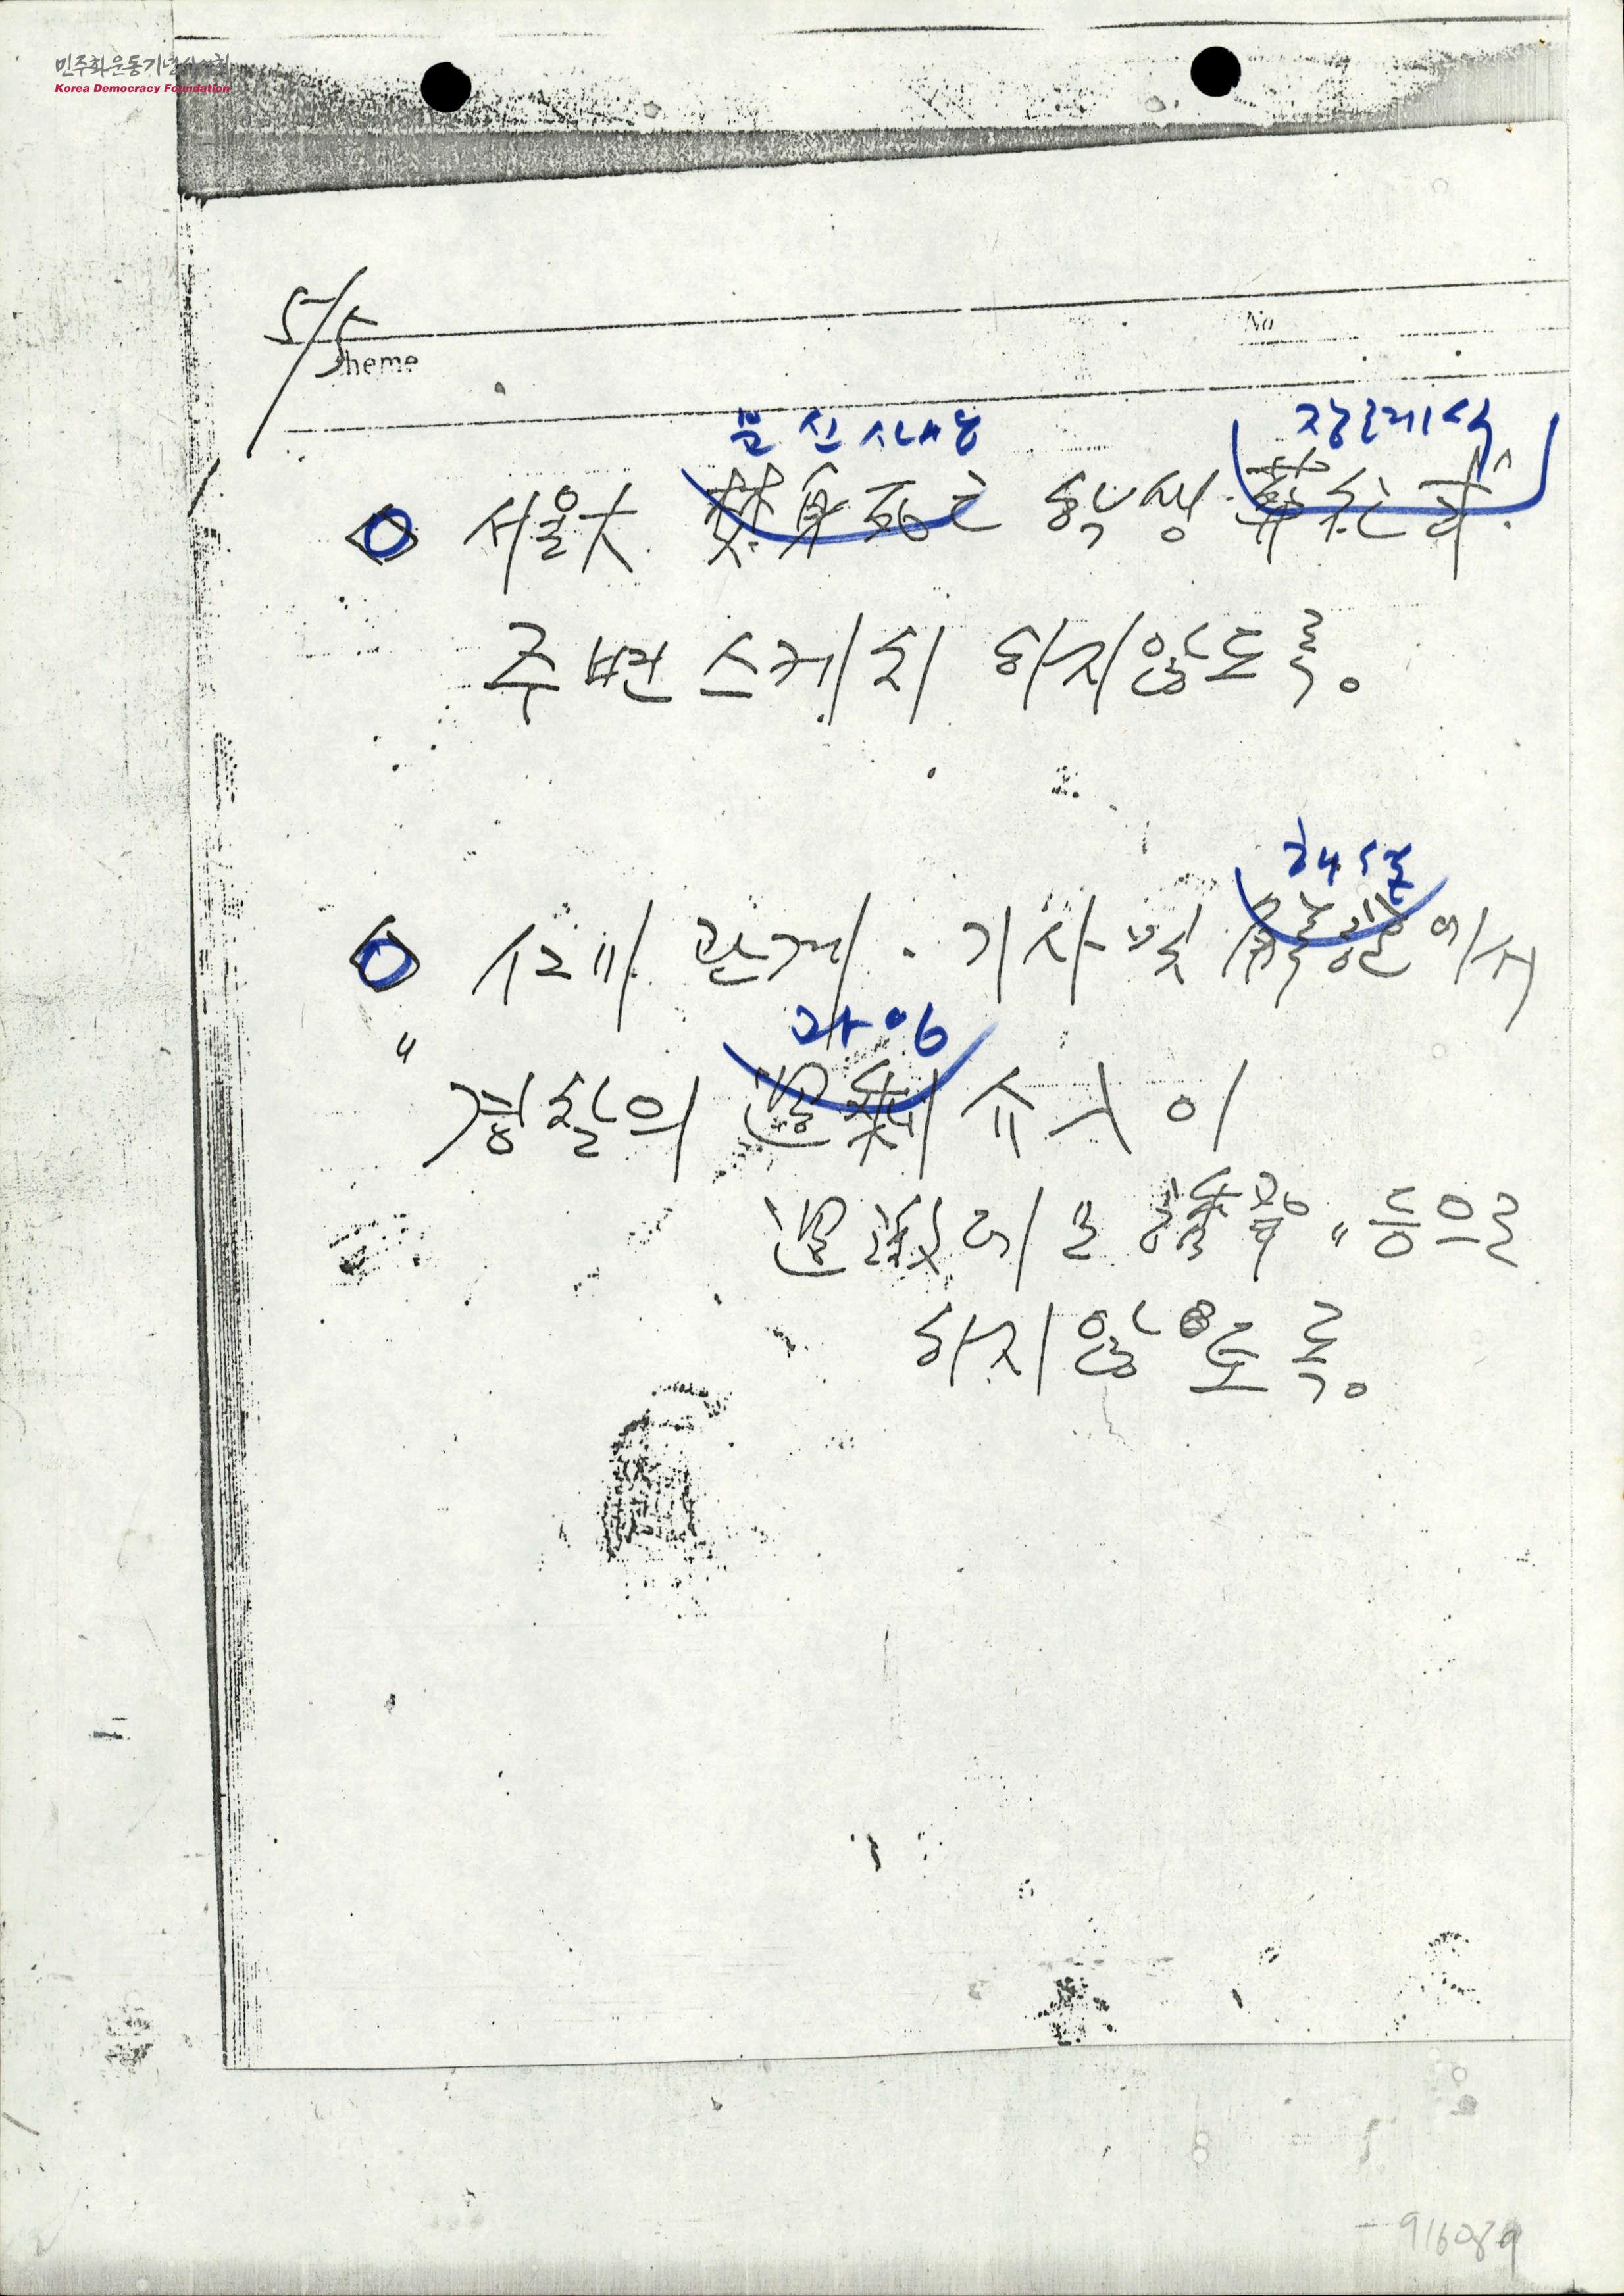 민주화운동기념사업회
Korea Democracy Foundation
5/5
No
theme
분신사망 장례식
서울大 焚身死亡 학생 葬禮式
주변 스케치 하지않도록。
해설
시위 관계. 기사 및 解說에서
과잉
" 경찰의 過剩 슈시이
過激에는 "등으로
하지않도록。
916089